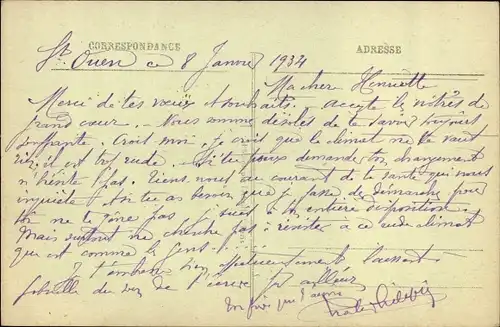 CORRESPONDANCE
ADRESSE
St Ouen ce 8 Janvier 1934
Ma cher Henriette
Merci de tes vœux & souhaits, accepte les nôtres de
grand cœur. - Nous somme désolés de te savoir toujours
souffrante. Croit moi. Je croit que le climat ne te vaut
rien, il est trop rude. - Si tu peux demander ton changement
n'hésite pas. Tiens nous au courant de ta santé qui nous
inquiète. Si tu as besoin que je fasse de démarche pour
toi ne te gêne pas je suis à ton entière disposition.
Mais surtout ne cherche pas à résister à ce rude climat
qui est comme le
Je t'embrasse bien affectueusement laissant
Gabrielle du